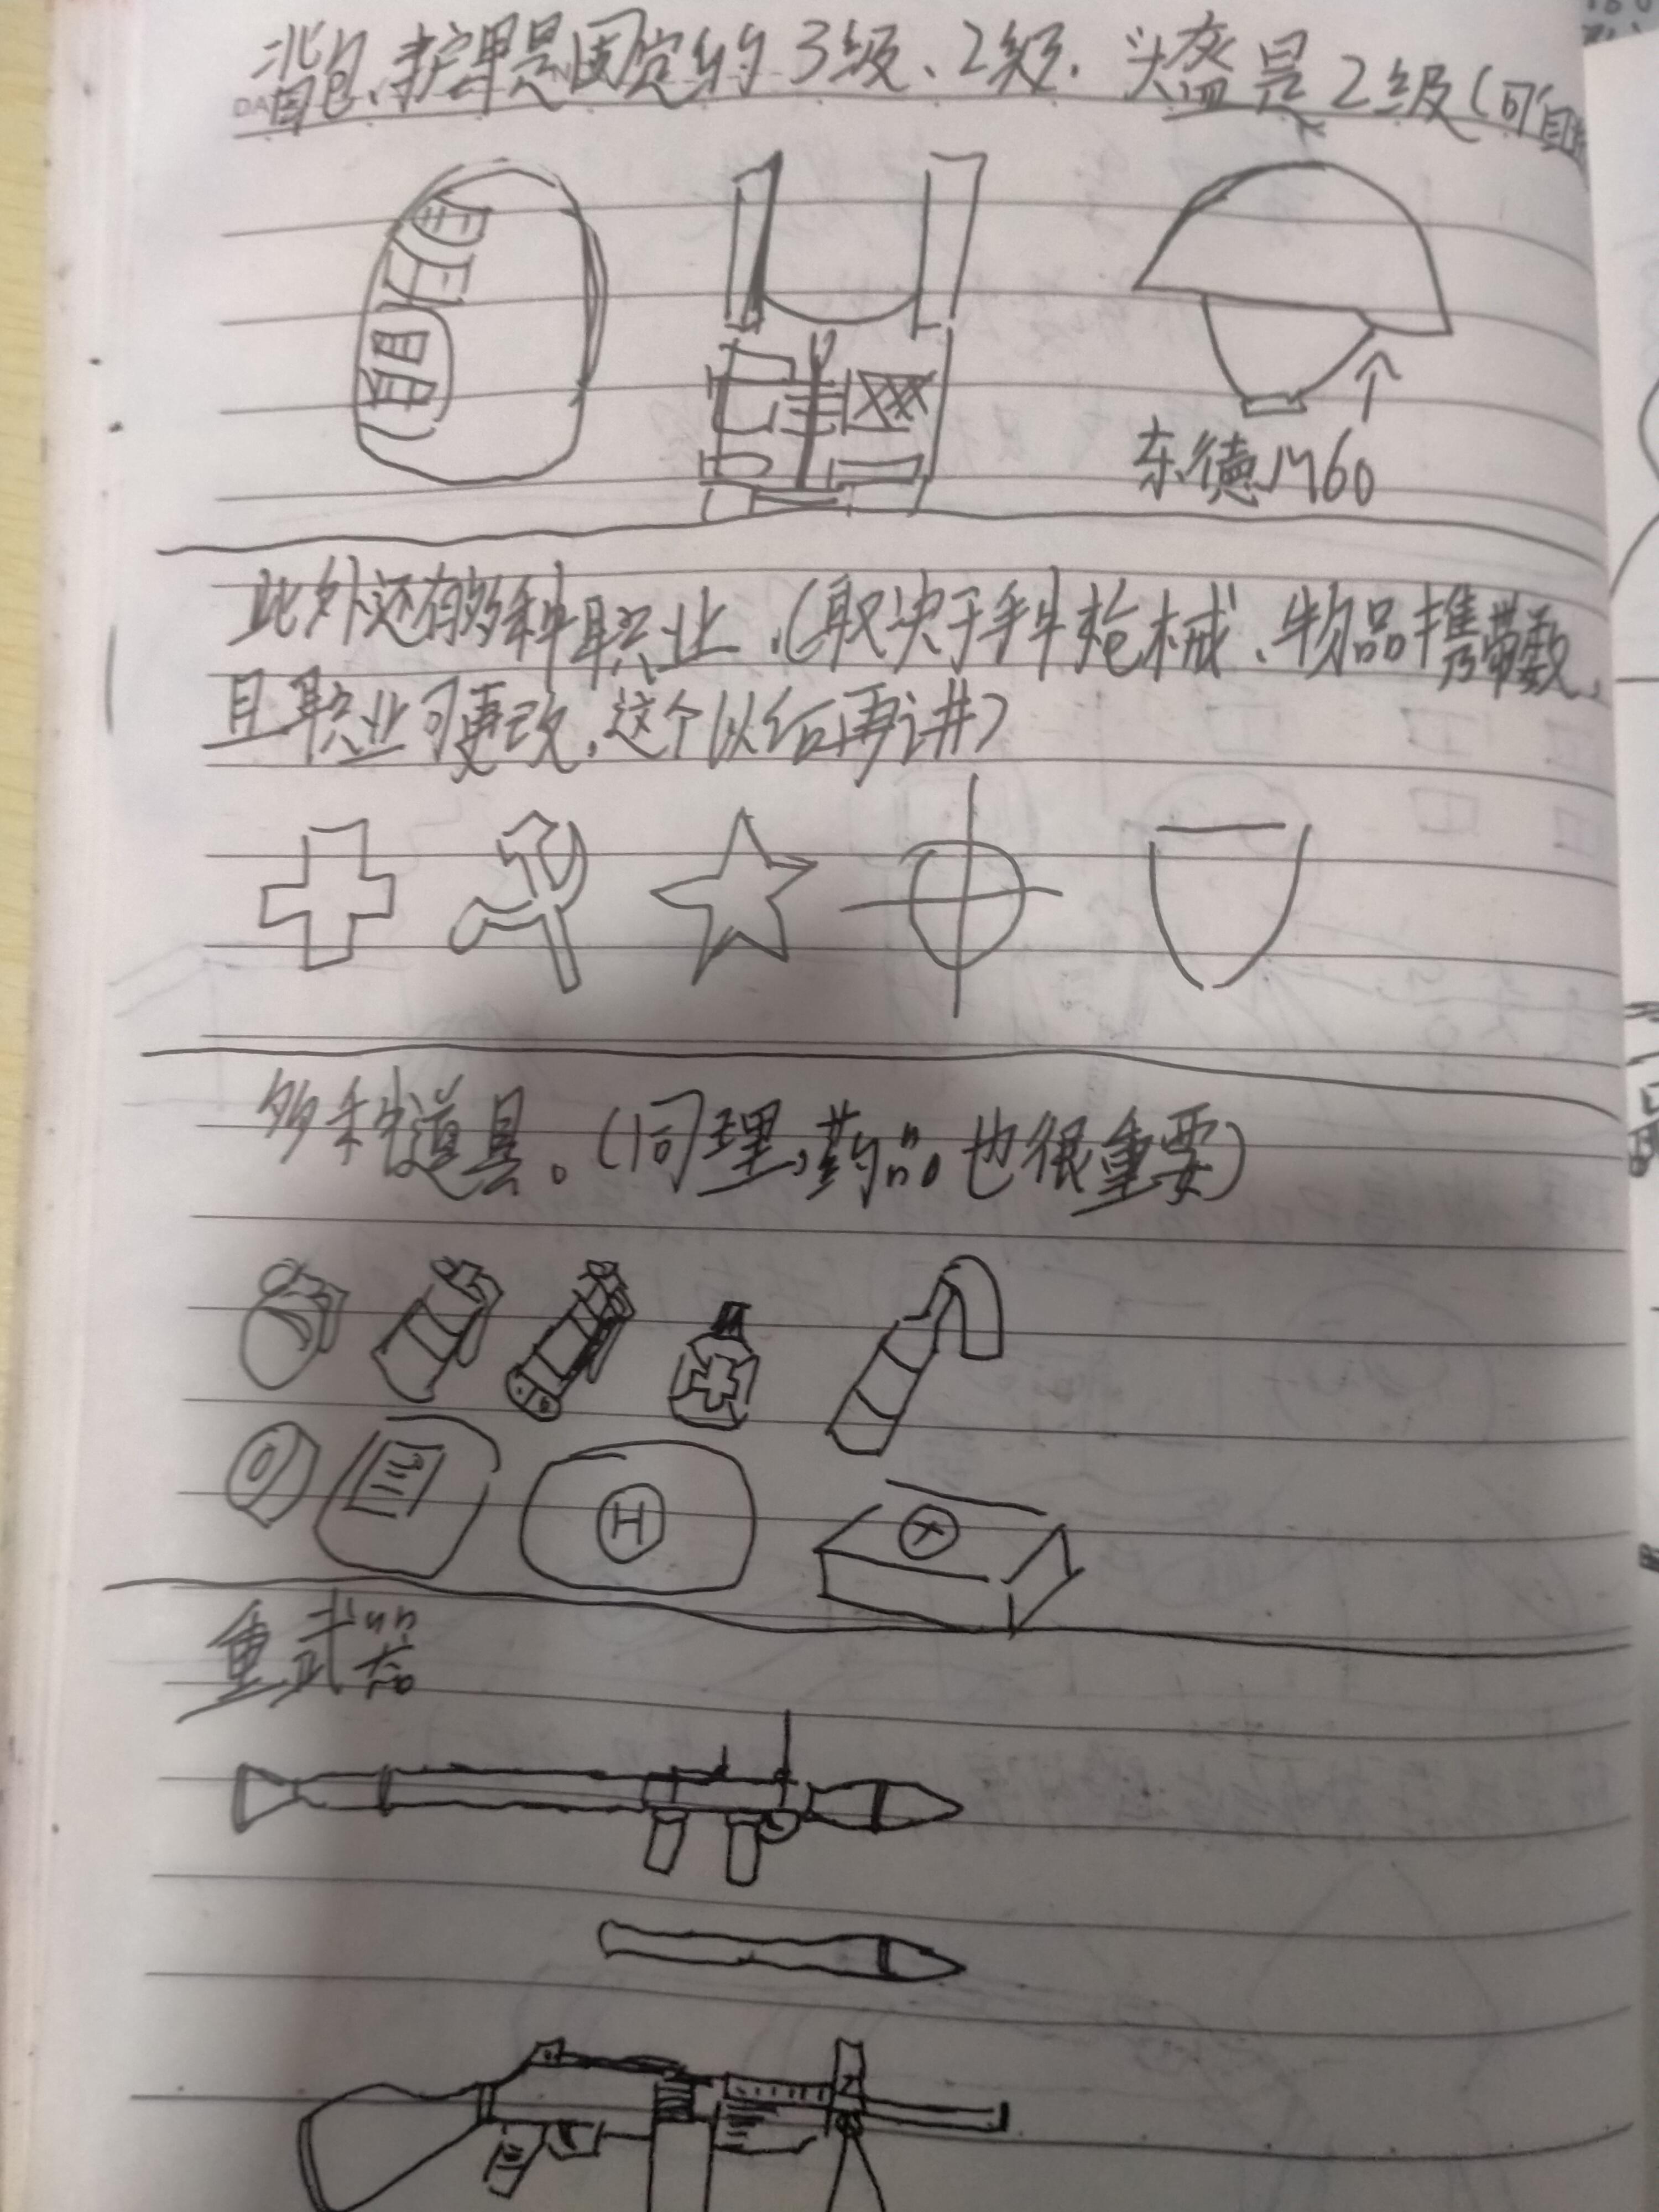 背包、护甲是固定的3级、2级.头盔是2级(可自
东德M60
此外还有多种职业.(取决于手牛枪械、物品携带数,
且职业可更改,这个以后再讲)
多种道具。(同理,药品也很重要)
H
重武器